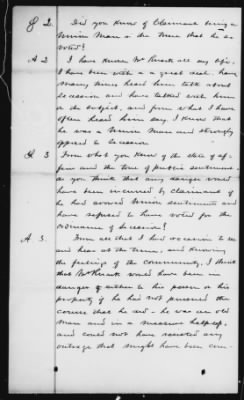 Q 2. Did you know of Claimant being a
Union Man at the time that he so
voted?
A 2 I have known Mr Knack all my life.
I have been with a great deal. have
many times heard him talk about
Secession and have talked with him
on the subject, and from what I have
often heard him say I know that
he was a Union Man and strongly
opposed to Secession
Q. 3 From what you know of the state of af-
fairs and the tone of public sentiment
do you think that any danger would
have been incurred by Claimant if
he had avowed Union sentiments and
have refused to have voted for the
Ordinance of Secession?
A. 3. From all that I had occasion to see
and hear at the time, and knowing
the feelings of the community, I think
that Mr Knack would have been in
danger of either to his person or his
property if he had not pursued the
course that he did - he was an old
man and in a measure helpless,
and could not have resisted any
outrage that might have been com-